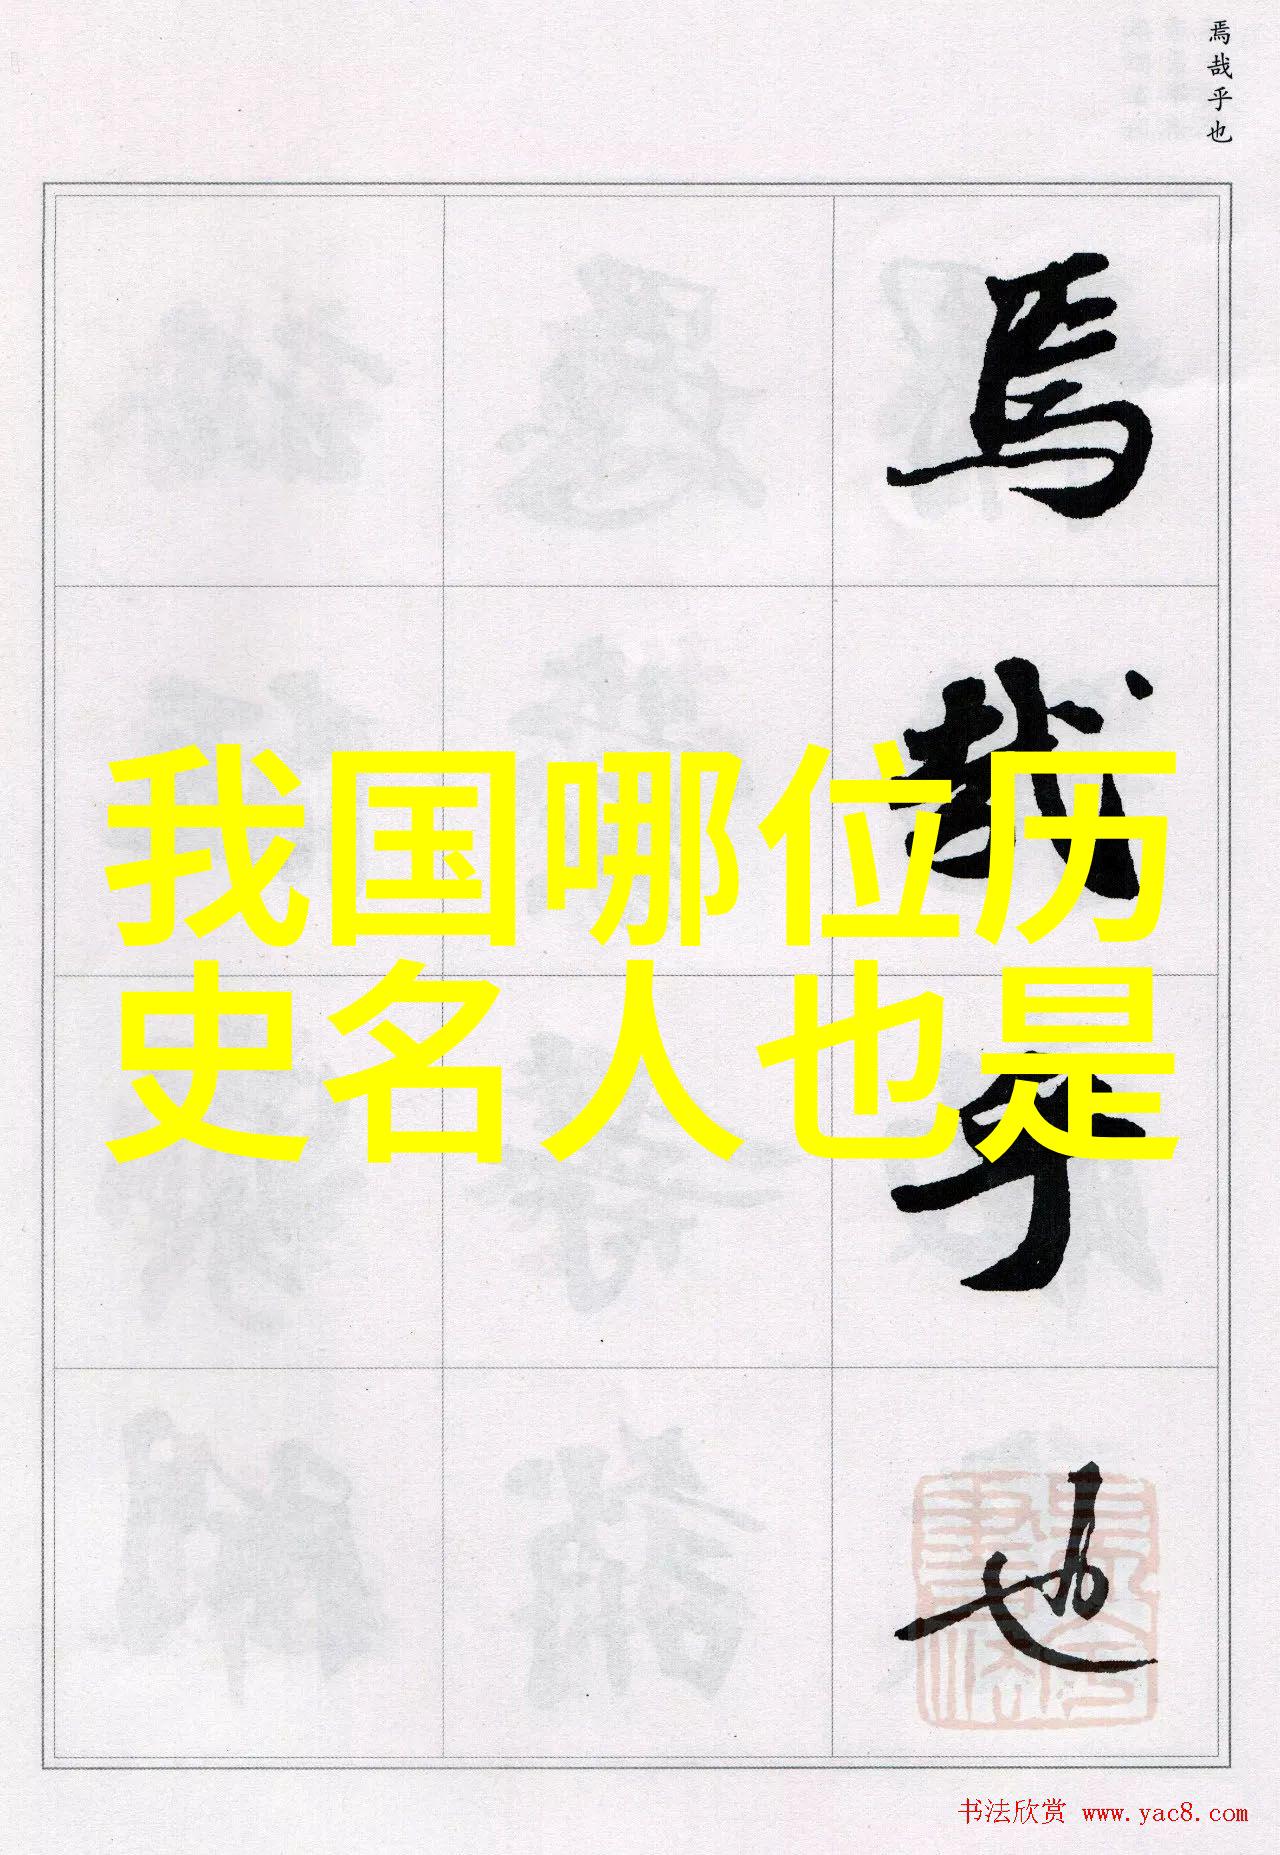 焉哉乎也
焉
哉
乎
也
我国哪位历
史名人也是
书法欣赏 www.yac8.com